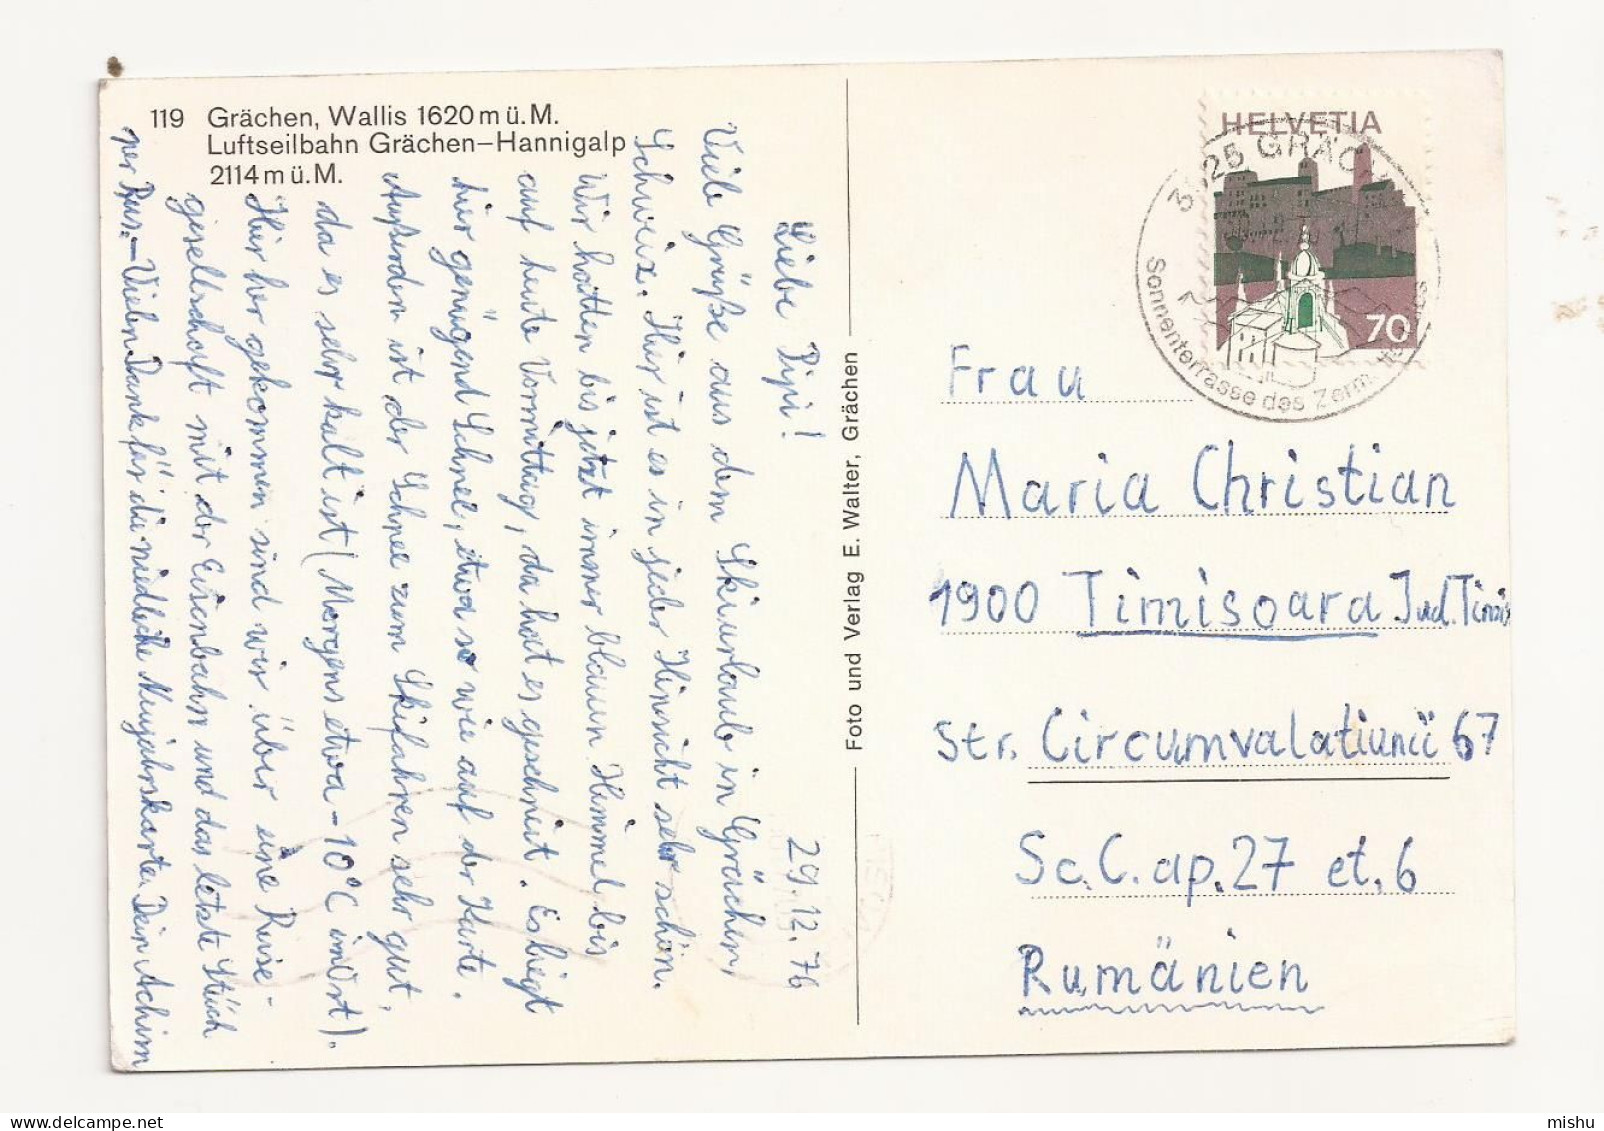 119 Grächen, Wallis 1620 m ü. M.
Luftseilbahn Grächen–Hannigalp
2114 m ü. M.
29.12.76
Liebe Pipi!
Viele Grüße aus dem Skiurlaub in Grächen,
Schweiz. Hier ist es in jeder Hinsicht sehr schön.
Wir hatten bis jetzt immer blauen Himmel bis
auf heute Vormittag, da hat es geschneit. Es liegt
hier genügend Schnee, etwa so wie auf der Karte.
Außerdem ist der Schnee zum Skifahren sehr gut,
da es sehr kalt ist (Morgens etwa -10°C im Ort).
Hier her gekommen sind wir über eine Reise-
gesellschaft mit der Eisenbahn und das letzte Stück
per Bus. - Vielen Dank für die niedliche Neujahrskarte. Dein Achim
Foto und Verlag E. Walter, Grächen
HELVETIA
70
GRÄCH
Sonnenterrasse des Zerm
Frau
Maria Christian
1900 Timisoara Jud. Timis
Str. Circumvalatiunii 67
Sc. C. ap. 27 et. 6
Rumänien
delcampe.net
mishu